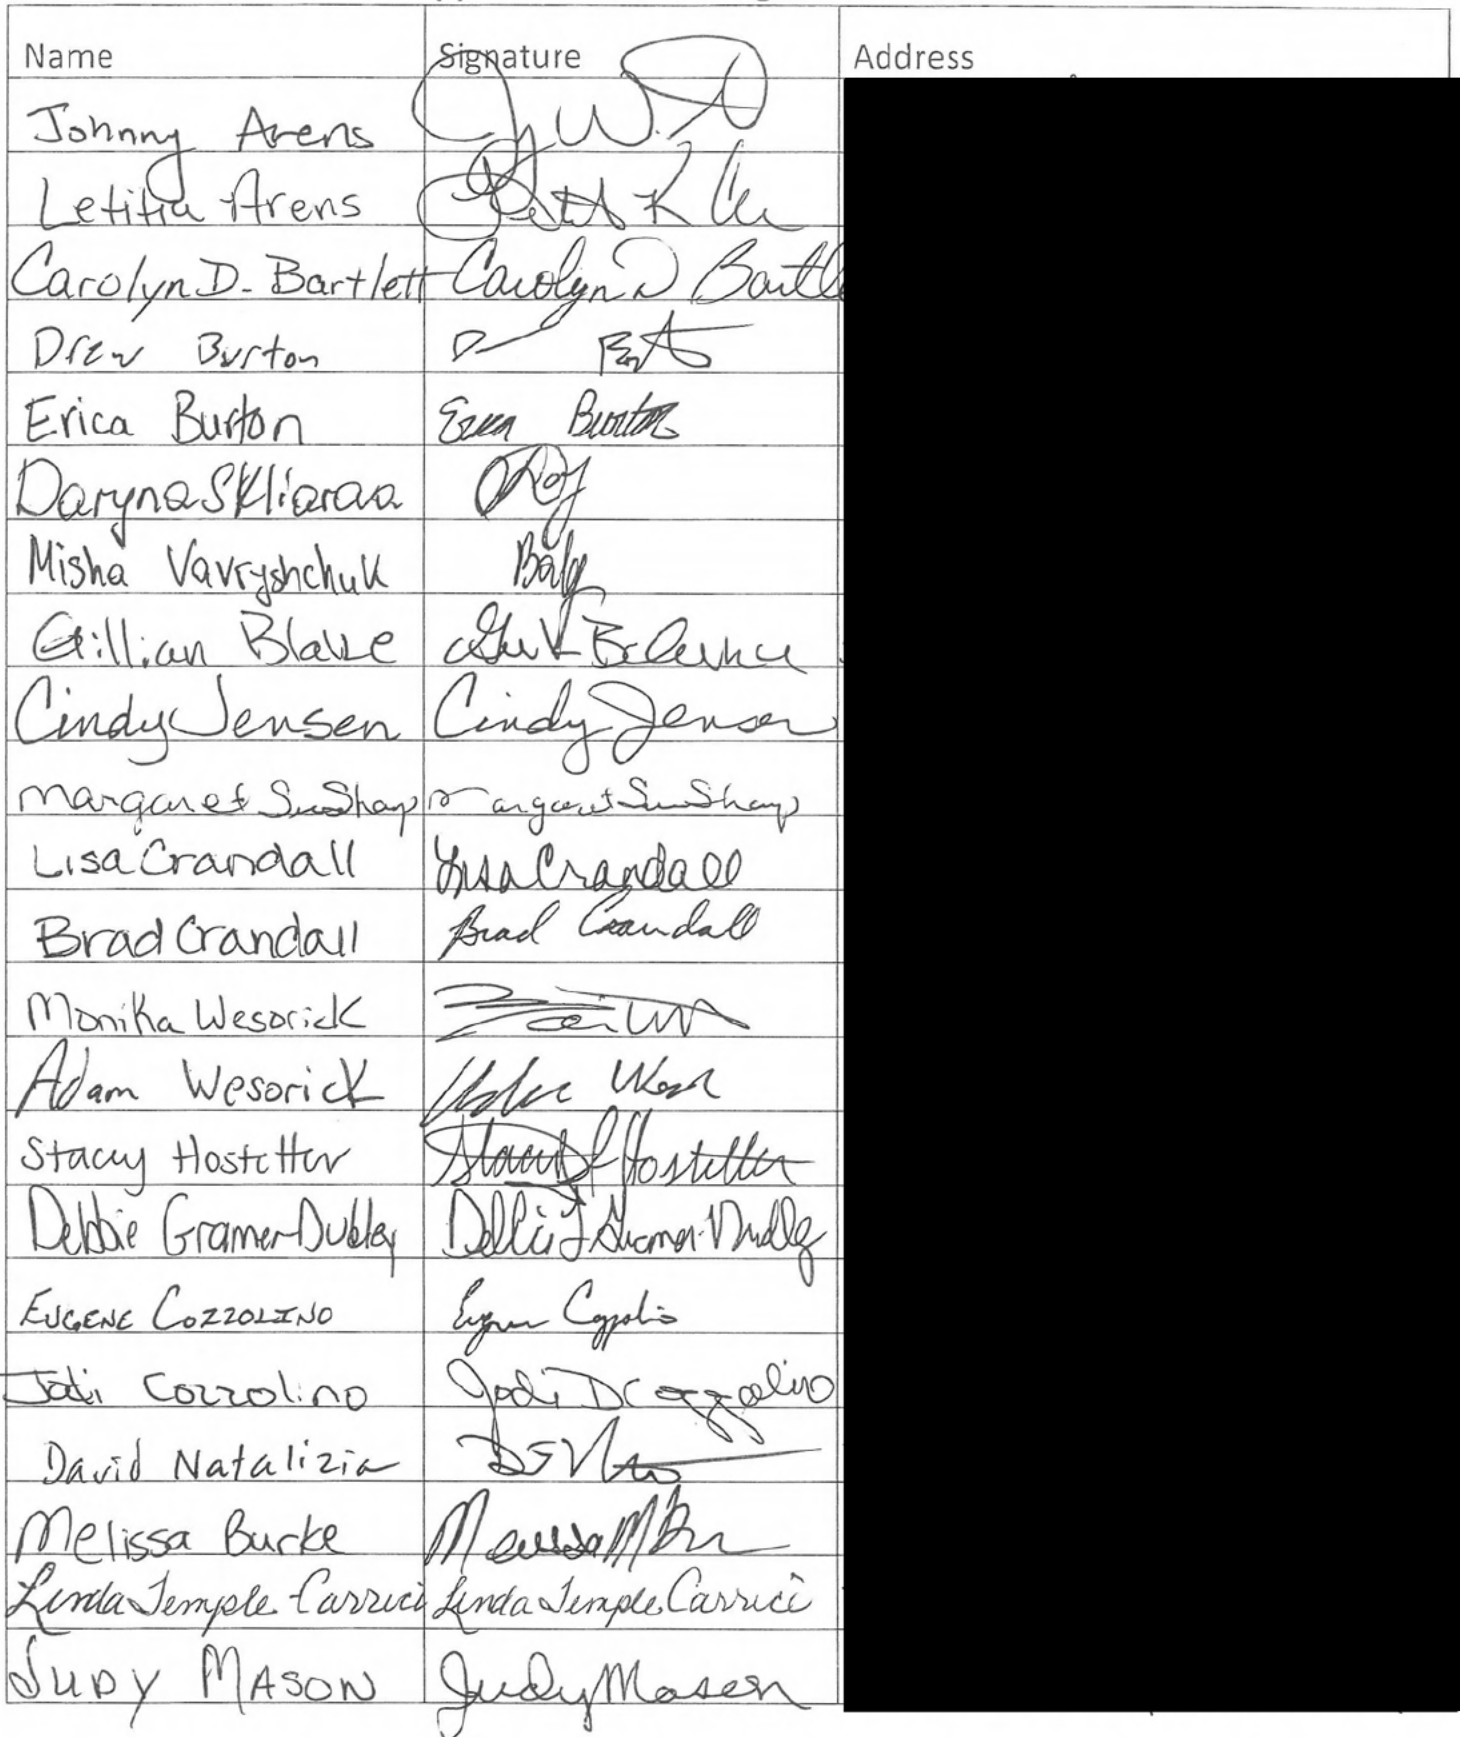 Name Signature Address
Johnny Arens
Letitia Arens
Carolyn D. Bartlett Carolyn D Bartle
Drew Burton
Erica Burton Erica Burton
Daryna Skliarova
Misha Vavryshchuk
Gillian Blake
Cindy Jensen Cindy Jensen
Margaret Sue Sharp Margaret Sue Sharp
Lisa Crandall Lisa Crandall
Brad Crandall Brad Crandall
Monika Wesorick
Adam Wesorick
Stacey Hostetter Stacey L Hostetter
Debbie Gramer-Dubley
EUGENE COZZOLINO Eugene Cozzolino
Jodi Cozzolino Jodi D Cozzolino
David Natalizia
Melissa Burke Melissa M
Linda Temple Carrici Linda Temple Carrici
JUDY MASON Judy Mason